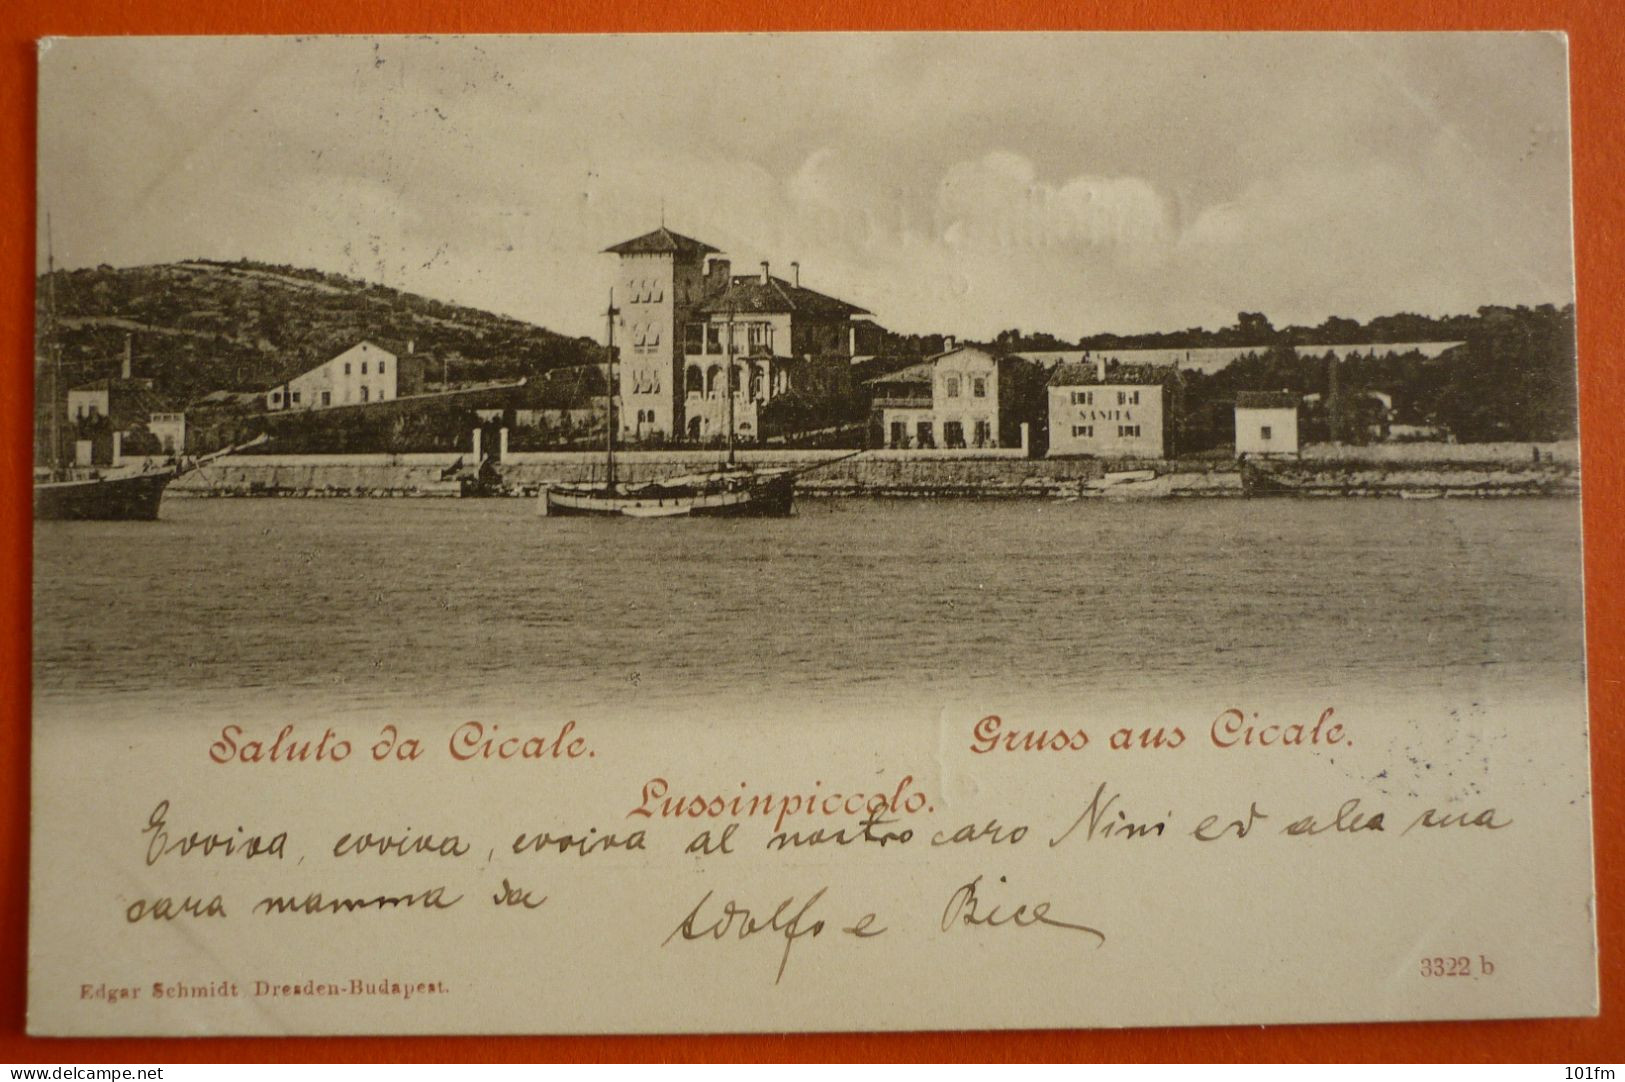 SANITA
Saluto da Cicale.
Gruss aus Cicale.
Lussinpiccolo.
Evviva, evviva, evviva al nostro caro Nini ed alla sua
cara mamma da
Adolfo e Bice
Edgar Schmidt Dresden-Budapest.
3322 b
delcampe.net
101fm